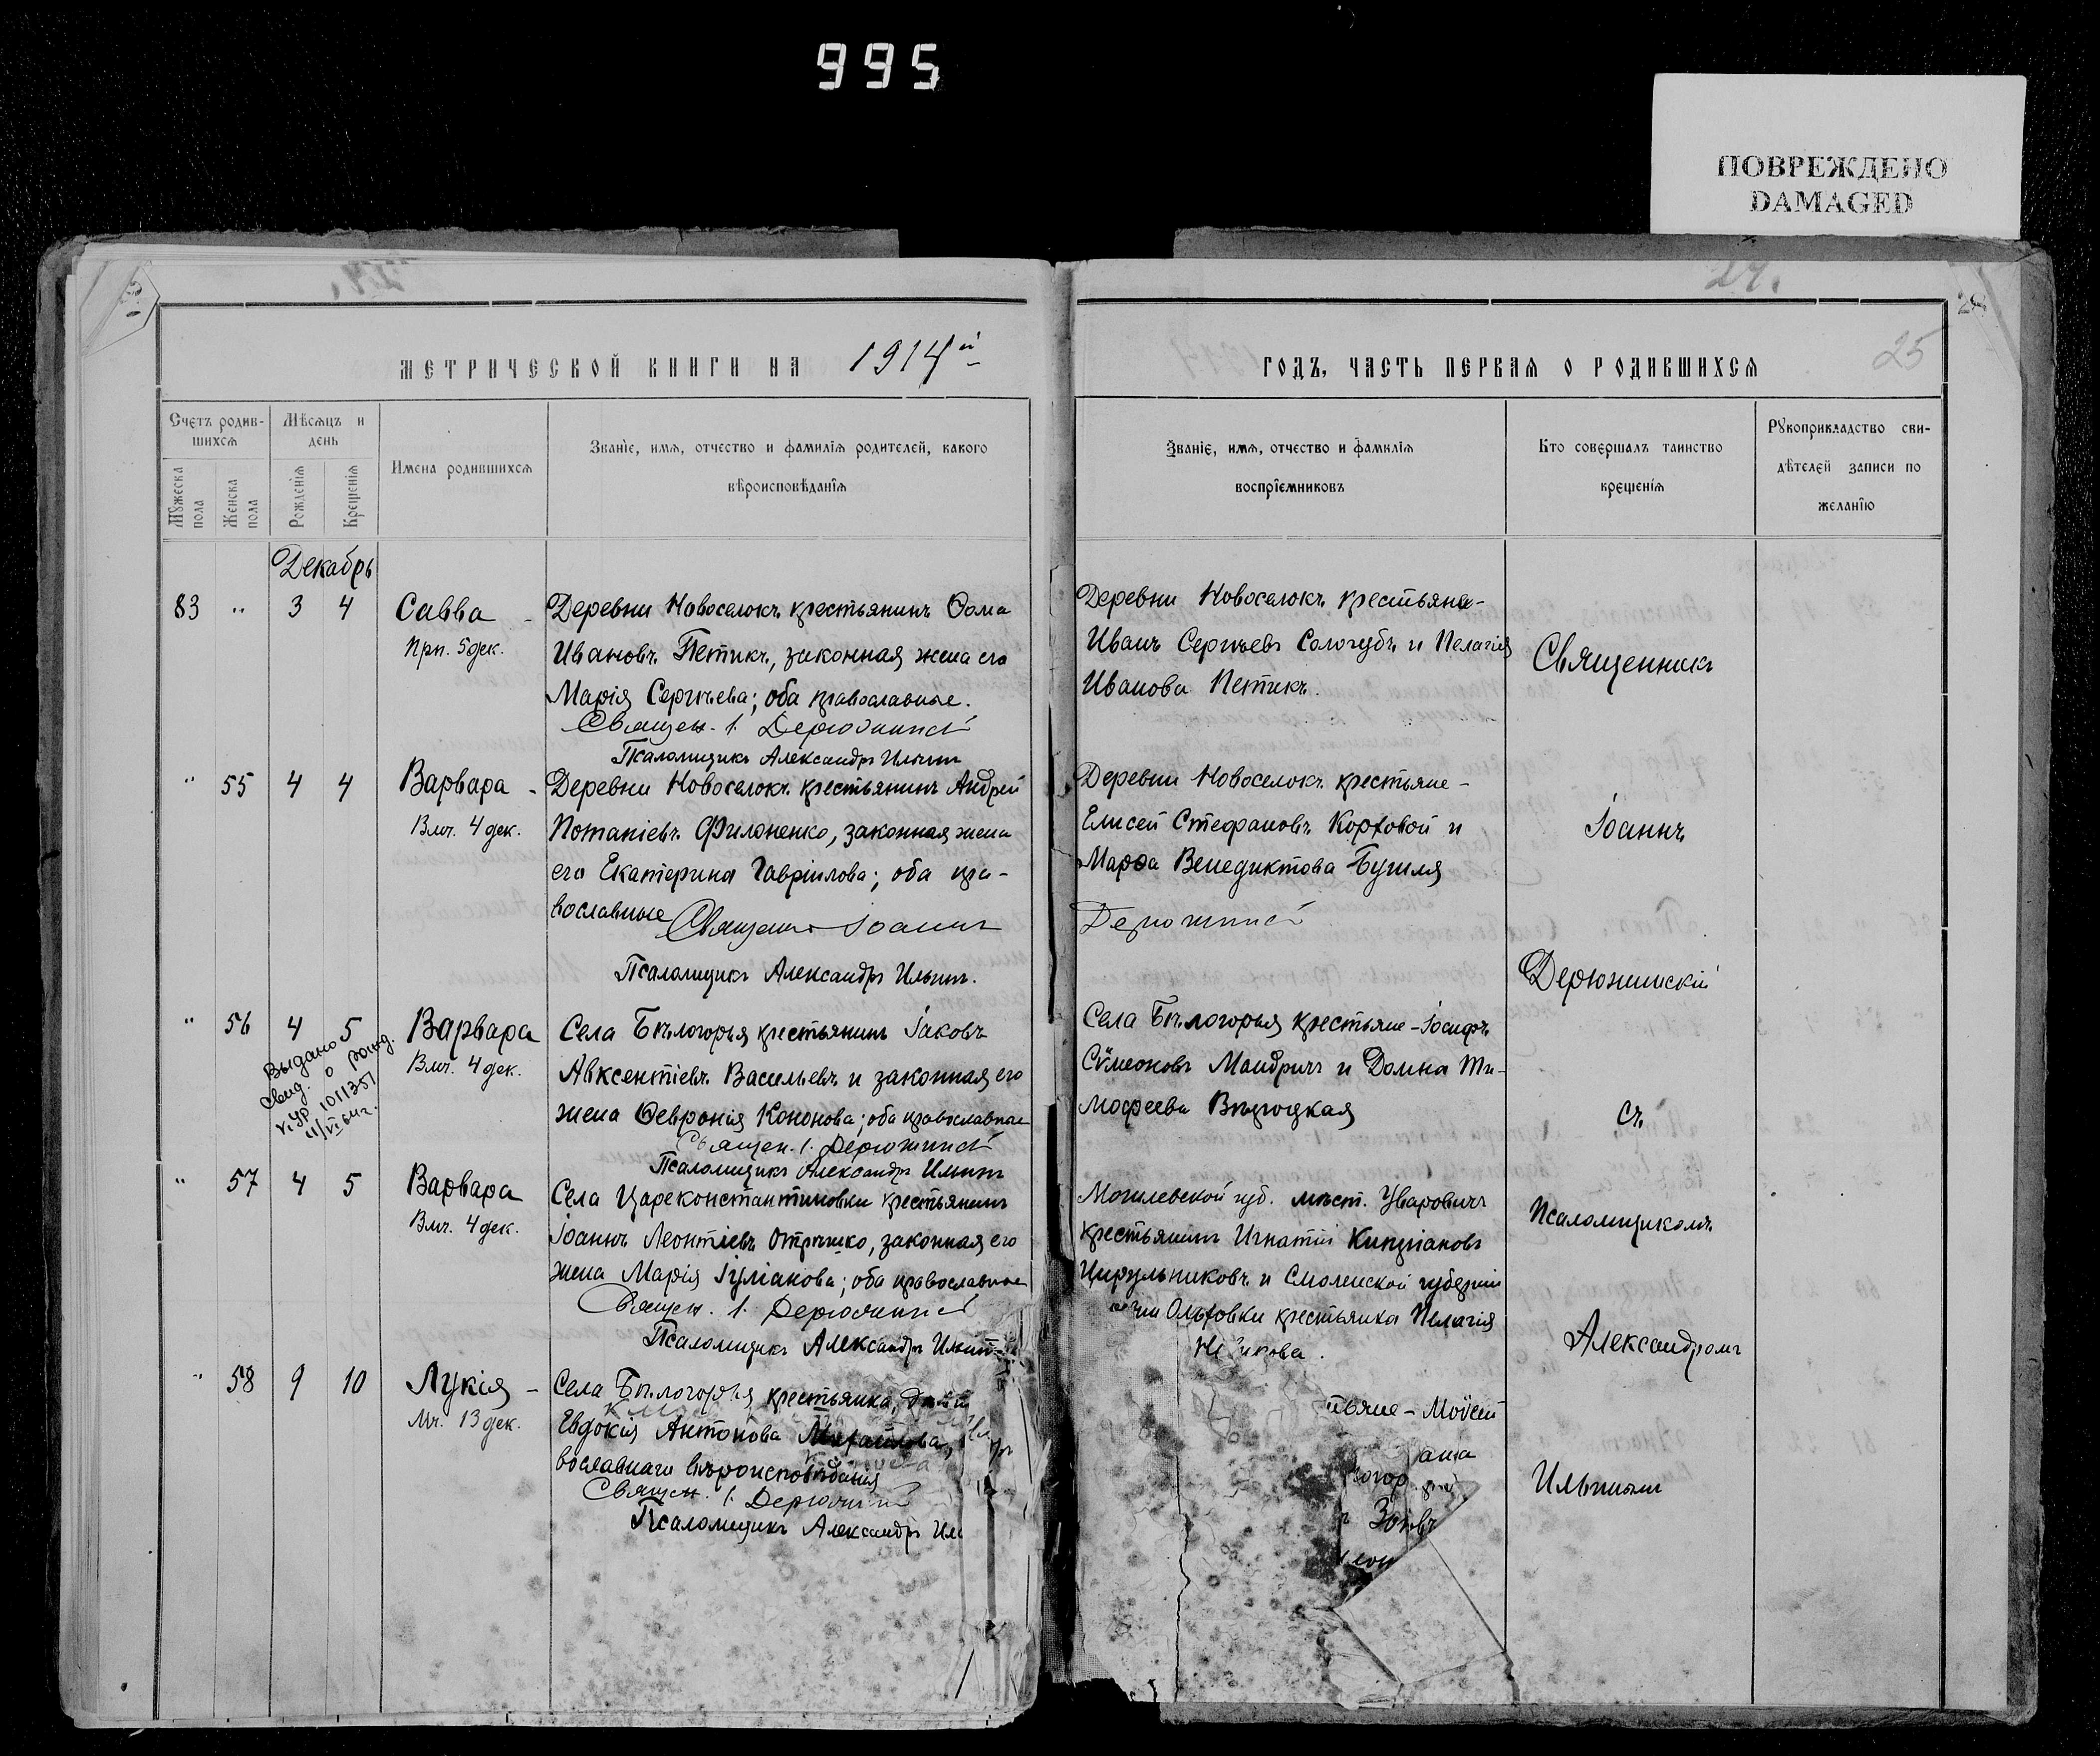 995
ПОВРЕЖДЕНО
DAMAGED
24.
25
МЕТРИЧЕСКОЙ КНИГИ НА 1914й
ГОДЪ, ЧАСТЬ ПЕРВАЯ О РОДИВШИХСЯ
Счетъ родив-
шихся
Мѣсяцъ и
день
Мужеска пола
Женска пола
Рожденїя
Крещенїя
Имена родившихся
Званїе, имя, отчество и фамилїя родителей, какого
вѣроисповѣданїя
Званїе, имя, отчество и фамилїя
воспрїемниковъ
Кто совершалъ таинство
крещенїя
Рукоприкладство сви-
дѣтелей записи по
желанїю
Декабрь
83 " 3 4 Савва -
Прп. 5 дек.
Деревни Новоселокъ крестьянинъ Ѳома
Ивановъ Петикъ, законная жена его
Марія Сергѣева; оба православные.
Священ. І. Дерюжинскій
Псаломщикъ Александръ Ильинъ
Деревни Новоселокъ крестьяне-
Иванъ Сергѣевъ Сологубъ и Пелагія
Иванова Петикъ.
" 55 4 4 Варвара -
Влч. 4 дек.
Деревни Новоселокъ крестьянинъ Андрей
Потапіевъ Филоненко, законная жена
его Екатерина Гавріилова; оба пра-
вославные
Священникъ Іоаннъ
Дерюжинскій
Псаломщикъ Александръ Ильинъ.
Деревни Новоселокъ крестьяне-
Елисей Стефановъ Корховой и
Марѳа Венедиктова Бушля
" 56 4 5 Варвара
Влч. 4 дек.
Выдано
свид. о рожд.
1011351
Села Бѣлогорья крестьянинъ Іаковъ
Авксентіевъ Васильевъ и законная его
жена Ѳевронія Кононова; оба православные
Священ. І. Дерюжинскій
Псаломщикъ Александръ Ильинъ
Села Бѣлогорья крестьяне-Іосифъ
Сѵмеоновъ Мандричъ и Домна Ти-
мофеева
" 57 4 5 Варвара
Влч. 4 дек.
Села Цареконстантиновки крестьянинъ
Іоаннъ Леонтіевъ Отрѣшко, законная его
жена Марія Іуліанова; оба православные
Священ. І. Дерюжинскій
Псаломщикъ Александръ Ильинъ
Могилевской губ. мѣст. Уваровичъ
крестьянинъ Игнатій Кипріановъ
Цирульниковъ и Смоленской губерніи
Ольховки крестьянка Пелагія
" 58 9 10 Лукія -
Мч. 13 дек.
Села Бѣлогорья крестьянка,
Евдокія Антонова Михайлова,
вославнаго вѣроисповѣданія
Священ. І. Дерюжинскій
Псаломщикъ Александръ Иль
тьяне - Моѵсей
Зотовъ
Священникъ
Іоаннъ
Дерюжинскій
съ
Псаломщикомъ
Александромъ
Ильинымъ